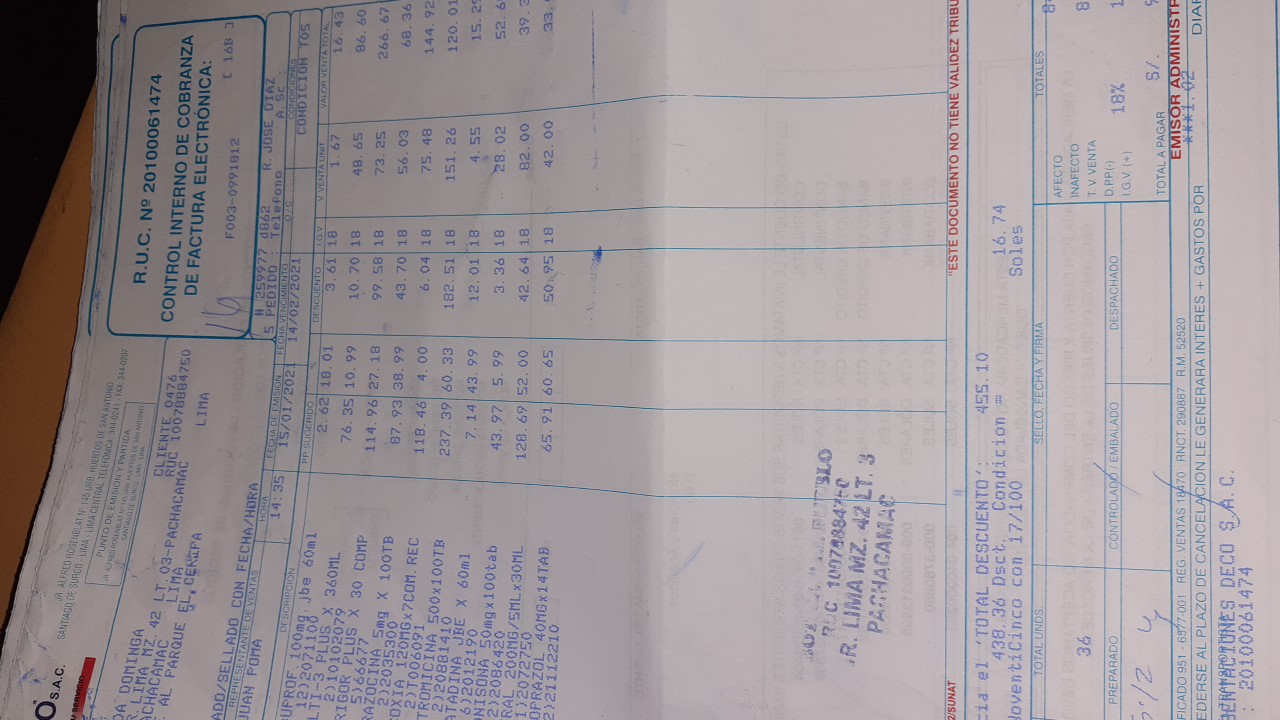 O® S.A.C.
JR. ALFREDO ROSENBLAT Nº 145 URB. HUERTOS DE SAN ANTONIO
SANTIAGO DE SURCO - LIMA - LIMA CENTRAL TELEFÓNICA: 344-0241 - FAX: 344-0207
PUNTO DE EMISION Y PARTIDA
R.U.C. Nº 20100061474
CONTROL INTERNO DE COBRANZA
DE FACTURA ELECTRÓNICA:
F003-0991812 [ 16B ]
DA DOMINGA CLIENTE 0476
LIMA MZ. 42 LT. 03-PACHACAMAC RUC 10078884750
ACHACAMAC LIMA
AL PARQUE EL CERCPA LIMA
# 259977 d862 R. JOSE DIAZ
5 PEDIDO : Telefono A.Sc
ADO/SELLADO CON FECHA/HORA
REPRESENTANTE DE VENTAS HORA FECHA DE EMISION FECHA VENCIMIENTO O/C CONDICIONES
JUAN POMA 14:35 15/01/2021 14/02/2021 CONDICION TOS
DESCRIPCION PP. SUGERIDO % DESCUENTO I.G.V. V.VENTA UNIT. VALOR VENTA TOTAL
UPROF 100mg jbe 60ml 2.62 18.01 3.61 18 1.67 16.43
12)2071100
LT-3 PLUS X 360ML 76.35 10.99 10.70 18 48.65 86.60
2)10102079
RIGOR PLUS X 30 COMP 114.96 27.18 99.58 18 73.25 266.67
5)666778
RAZOCINA 5mg X 100TB 87.93 38.99 43.70 18 56.03 68.36
2)2036300
OXIA 120MGx7COM.REC 118.46 4.00 6.04 18 75.48 144.92
2)1006091
TROMICINA 500x100TB 237.39 60.33 182.51 18 151.26 120.01
2)20881410
ATADINA JBE X 60ml 7.14 43.99 12.01 18 4.55 15.29
6)2012190
NISONA 50mgx100tab 43.97 5.99 3.36 18 28.02 52.69
2)2086420
RAL 200MG/5MLx30ML 128.69 52.00 42.64 18 82.00
1)2072750
OPRAZOL 40MGx14TAB 65.91 60.65 50.95 18 42.00
2)21112210
RUC 10078884750
JR. LIMA MZ. 42 LT. 3
PACHACAMAC
"ESTE DOCUMENTO NO TIENE VALIDEZ TRIBU
/SUNAT
cia el 'TOTAL DESCUENTO': 455.10
438.36 Dsct. Condicion = 16.74
NoventiCinco con 17/100 Soles
TOTAL UNDS. SELLO, FECHA Y FIRMA TOTALES
36
AFECTO
INAFECTO
T. V. VENTA
D.P.P.(-)
I.G.V. (+) 18%
TOTAL A PAGAR S/.
PREPARADO CONTROLADO / EMBALADO DESPACHADO
EMISOR ADMINISTR
FICADO 951 - 6577-001 REG. VENTAS 18470 RNCT. 290887 R.M. 52520
***1.02
DERSE AL PLAZO DE CANCELACION LE GENERARA INTERES + GASTOS POR
DIAR
SENTACIONES DECO S.A.C.
: 20100061474